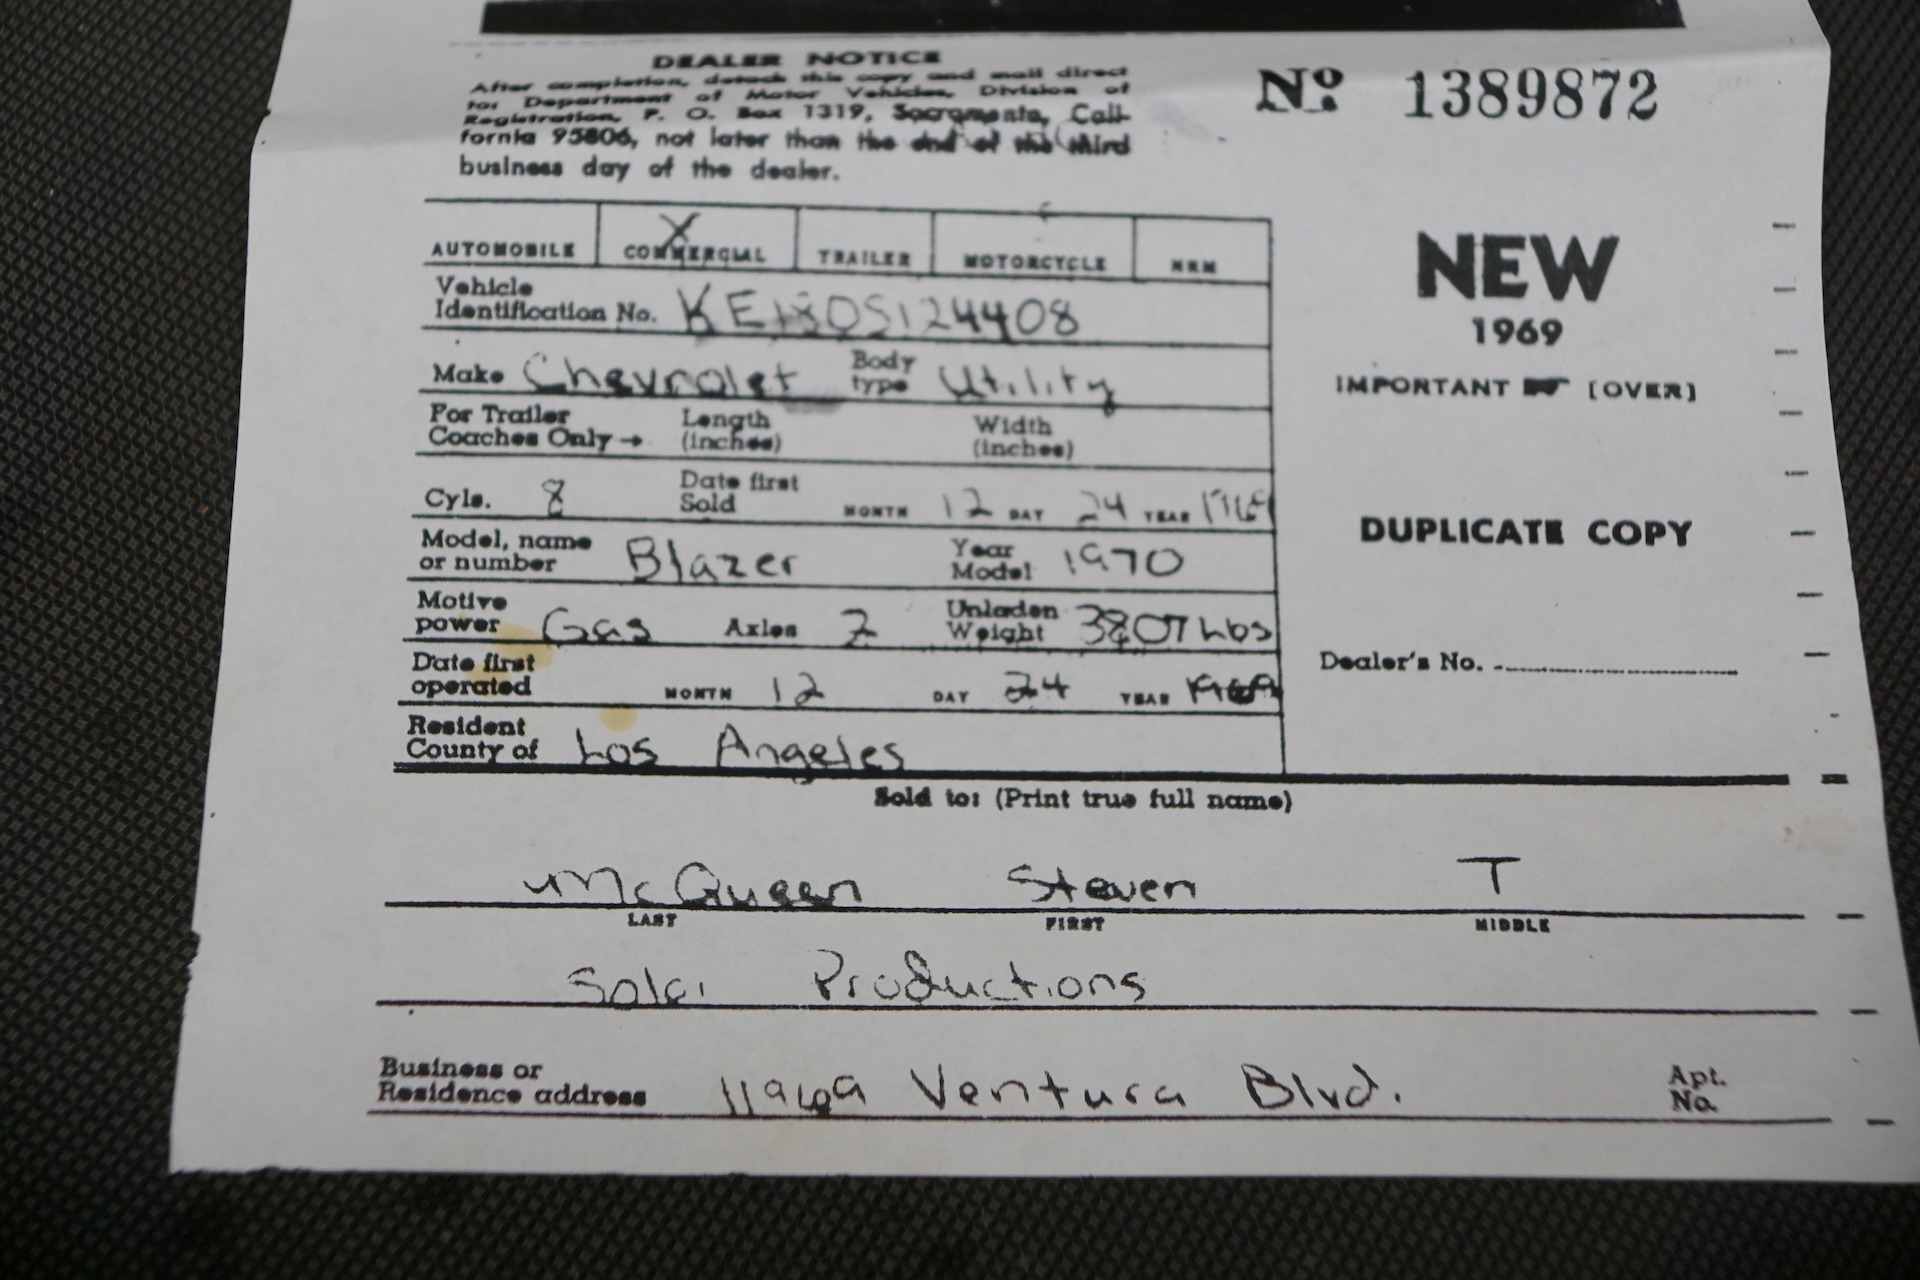 DEALER NOTICE
After completion, detach this copy and mail direct
to: Department of Motor Vehicles, Division of
Registration, P. O. Box 1319, Sacramento, Cali-
fornia 95806, not later than the end of the third
business day of the dealer.
Nº 1389872
AUTOMOBILE X COMMERCIAL TRAILER MOTORCYCLE NRM
Vehicle
Identification No. KE180S124408
NEW
1969
IMPORTANT [OVER]
Make Chevrolet Body type Utility
For Trailer
Coaches Only → Length (inches) Width (inches)
Cyls. 8 Date first Sold MONTH 12 DAY 24 YEAR 1969
DUPLICATE COPY
Model, name
or number Blazer Year Model 1970
Motive
power Gas Axles 2 Unladen Weight 3807 Lbs
Date first
operated MONTH 12 DAY 24 YEAR 1969
Dealer's No.
Resident
County of Los Angeles
Sold to: (Print true full name)
McQueen Steven T
LAST FIRST MIDDLE
Solar Productions
Business or
Residence address 11969 Ventura Blvd. Apt. No.